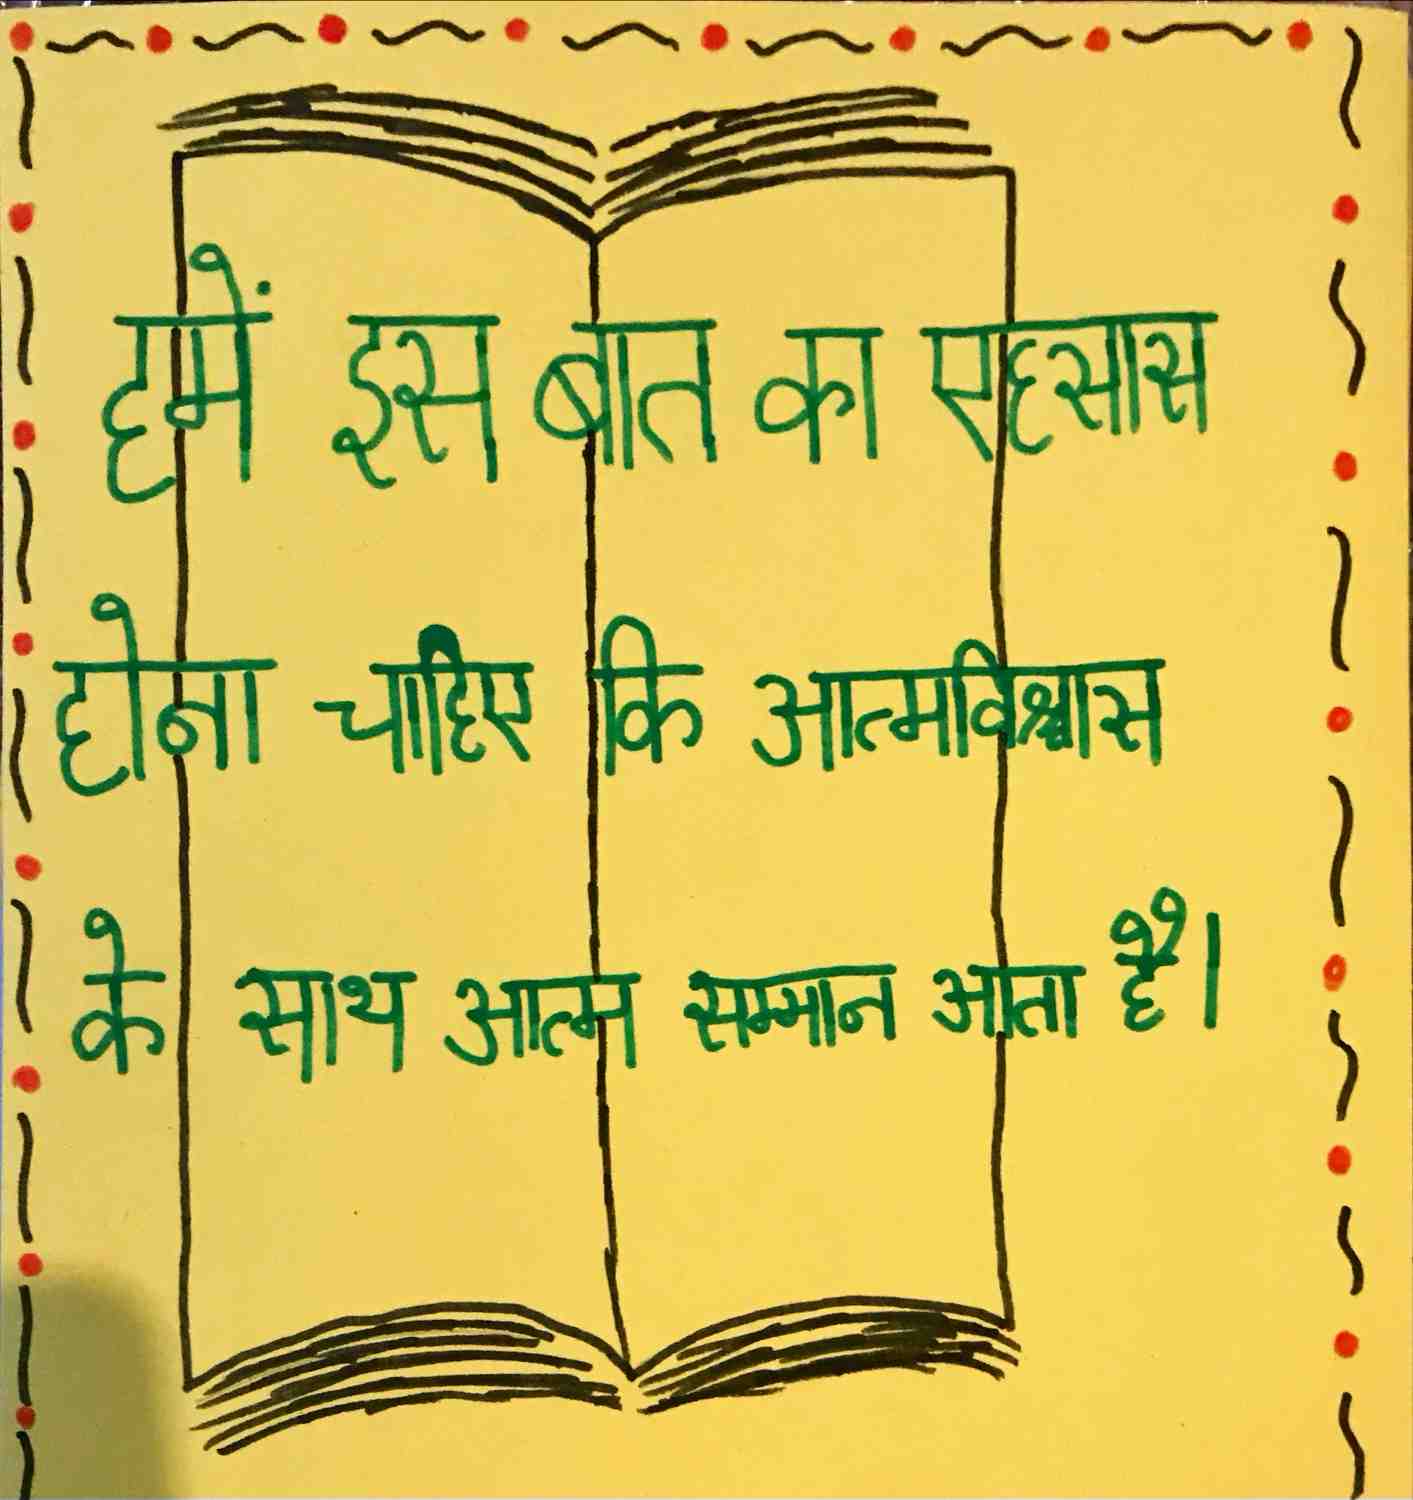 हमें इस बात का एहसास
होना चाहिए कि आत्मविश्वास
के साथ आत्म सम्मान आता है।